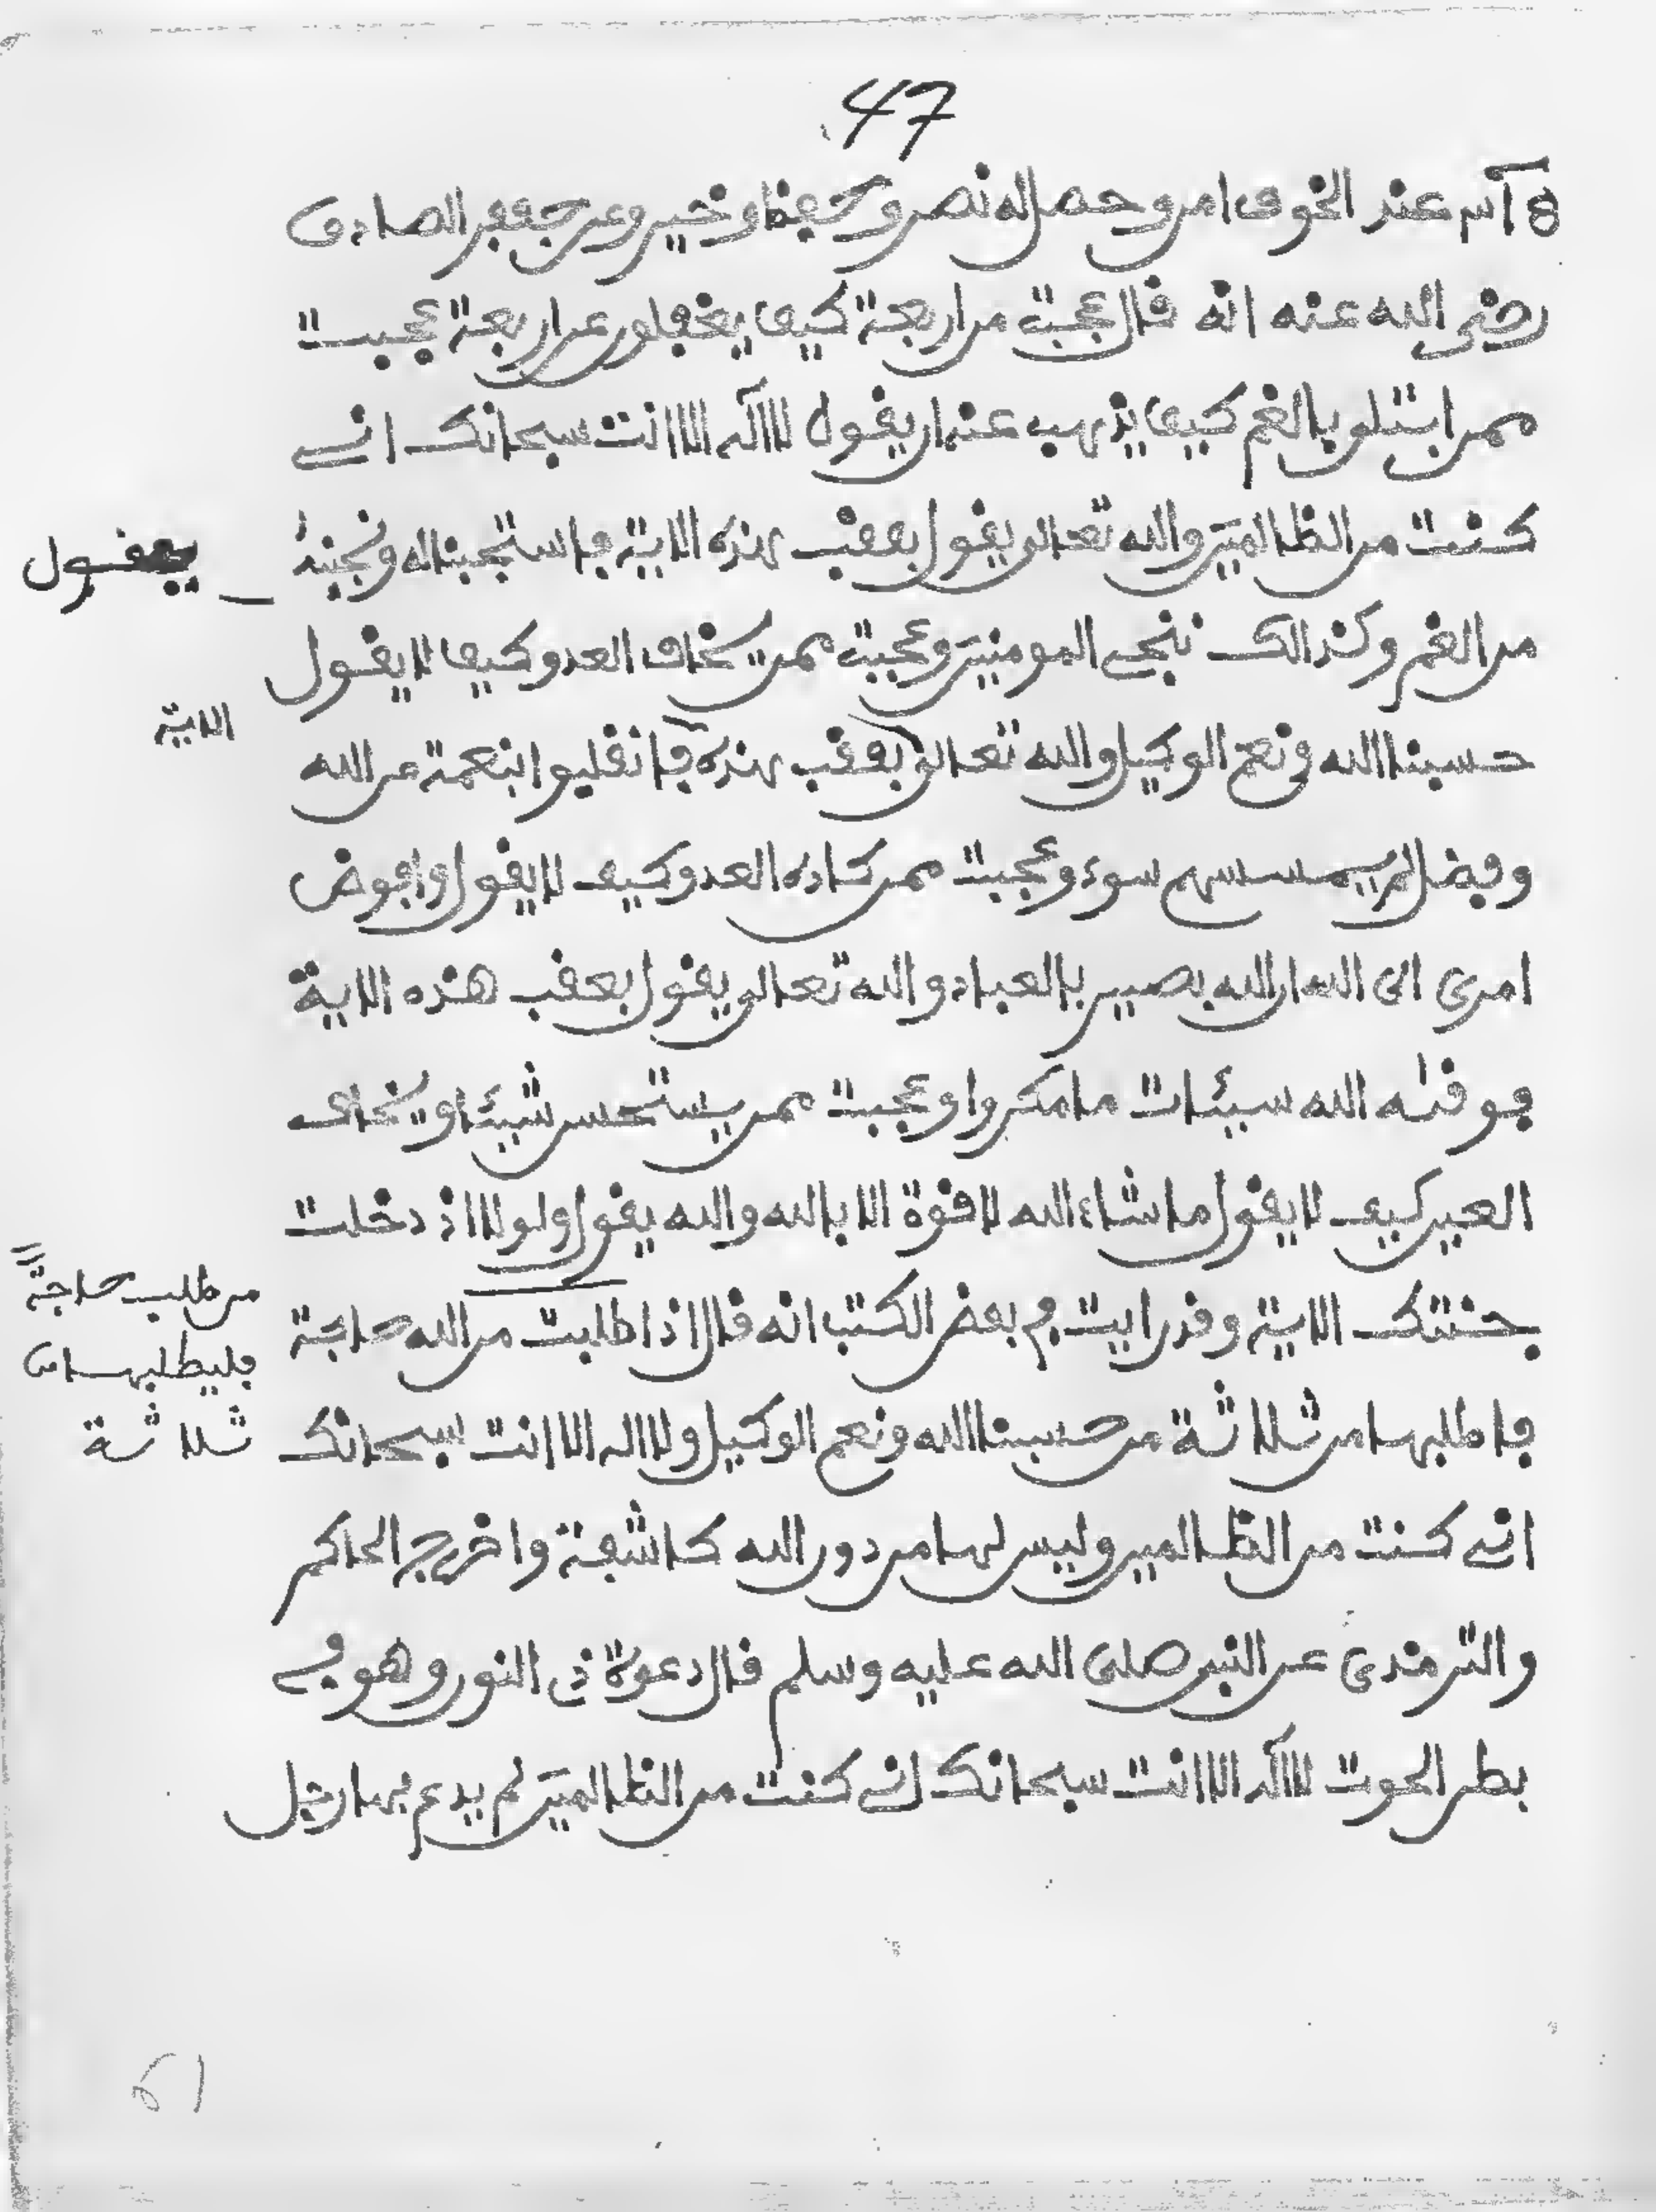 47
عند الخوف امن وحصل له نصر وحفظ وخير وعن جعفر الصادق
رضي الله عنه انه قال عجبت من اربعة كيف يغفلون عن اربعة عجبت
ممن ابتلي بالغم كيف يذهب عنه ان يقول لا اله الا انت سبحانك اني
كنت من الظالمين والله تعالى يقول بعقب هذه الاية فاستجبنا له ونجينه
يقول
من الغم وكذالك ننجي المومنين وعجبت ممن يخاف العدو كيف لا يقول
الاية
حسبنا الله ونعم الوكيل والله تعالى بعقب هذه فانقلبوا بنعمة من الله
وفضل لم يمسسهم سوء وعجبت ممن كاده العدو كيف لا يقول وافوض
امري الى الله ان الله بصير بالعباد والله تعالى يقول بعقب هذه الاية
فوقىه الله سيئات ما مكروا وعجبت ممن يستحسن شيئا ويخاف
العين كيف لا يقول ما شاء الله لا قوة الا بالله والله يقول ولولا اذ دخلت
جنتك الاية وقد رايت في بعض الكتب انه قال اذا طلبت من الله حاجة
من طلب حاجة
فليطلبها من
ثلاثة
فاطلبها من ثلاثة من حسبنا الله ونعم الوكيل ولا اله الا انت سبحانك
اني كنت من الظالمين وليس لها من دون الله كاشفة واخرج الحاكم
والترمذي عن النبي صلى الله عليه وسلم قال دعوة ذي النون وهو في
بطن الحوت لا اله الا انت سبحانك اني كنت من الظالمين لم يدع بها رجل
51